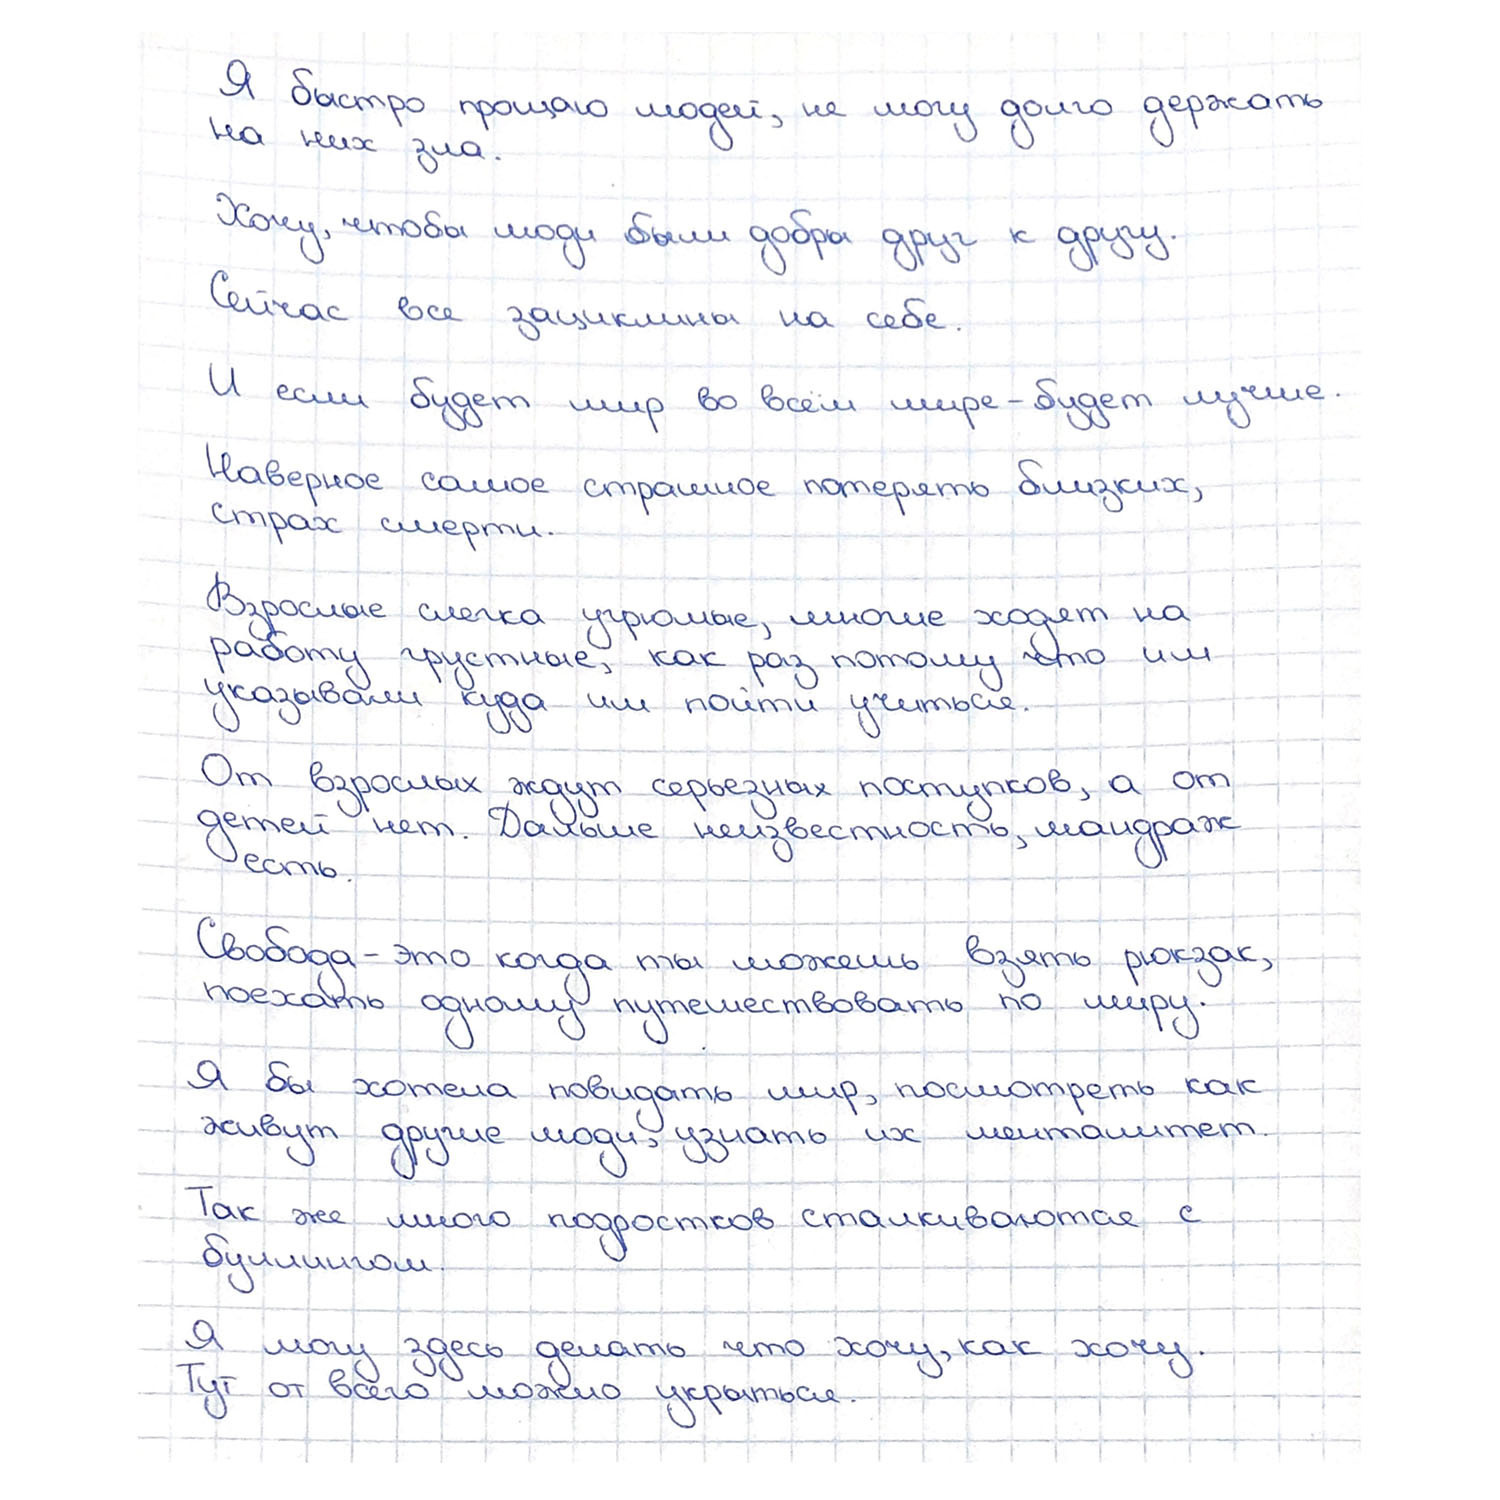 Я быстро прощаю людей, не могу долго держать
на них зла.
Хочу, чтобы люди были добры друг к другу.
Сейчас все зациклины на себе.
И если будет мир во всём мире - будет лучше.
Наверное самое страшное потерять близких,
страх смерти.
Взрослые слегка угрюмые, многие ходят на
работу грустные, как раз потому что им
указывали куда им пойти учиться.
От взрослых ждут серьезных поступков, а от
детей нет. Дальше неизвестность, мандраж
есть.
Свобода - это когда ты можешь взять рюкзак,
поехать одному путешествовать по миру.
Я бы хотела повидать мир, посмотреть как
живут другие люди, узнать их менталитет.
Так же много подростков сталкиваются с
буллингом.
Я могу здесь делать что хочу, как хочу.
Тут от всего можно укрыться.